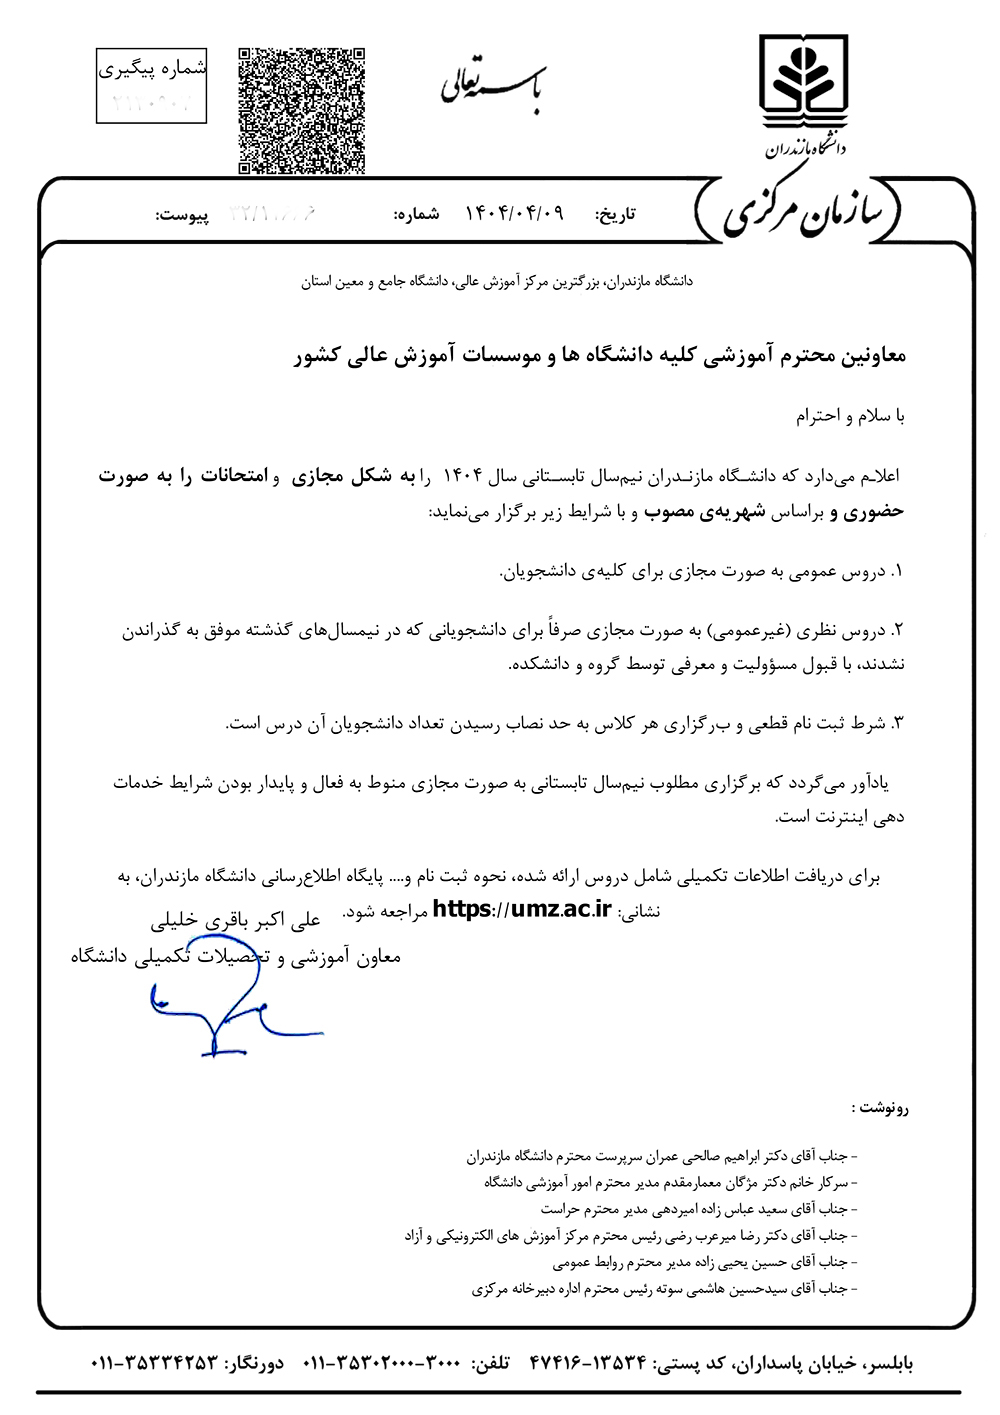 شماره پیگیری
باسمه تعالی
دانشگاه مازندران
سازمان مرکزی
تاریخ: ۱۴۰۴/۰۴/۰۹ شماره: پیوست:
دانشگاه مازندران، بزرگترین مرکز آموزش عالی، دانشگاه جامع و معین استان
معاونین محترم آموزشی کلیه دانشگاه ها و موسسات آموزش عالی کشور
با سلام و احترام
اعلام می‌دارد که دانشگاه مازندران نیم‌سال تابستانی سال ۱۴۰۴ را به شکل مجازی و امتحانات را به صورت
حضوری و براساس شهریه‌ی مصوب و با شرایط زیر برگزار می‌نماید:
۱. دروس عمومی به صورت مجازی برای کلیه‌ی دانشجویان.
۲. دروس نظری (غیرعمومی) به صورت مجازی صرفاً برای دانشجویانی که در نیمسال‌های گذشته موفق به گذراندن
نشدند، با قبول مسؤولیت و معرفی توسط گروه و دانشکده.
۳. شرط ثبت نام قطعی و برگزاری هر کلاس به حد نصاب رسیدن تعداد دانشجویان آن درس است.
یادآور می‌گردد که برگزاری مطلوب نیم‌سال تابستانی به صورت مجازی منوط به فعال و پایدار بودن شرایط خدمات
دهی اینترنت است.
برای دریافت اطلاعات تکمیلی شامل دروس ارائه شده، نحوه ثبت نام و.... پایگاه اطلاع‌رسانی دانشگاه مازندران، به
نشانی: https://umz.ac.ir مراجعه شود.
علی اکبر باقری خلیلی
معاون آموزشی و تحصیلات تکمیلی دانشگاه
رونوشت :
- جناب آقای دکتر ابراهیم صالحی عمران سرپرست محترم دانشگاه مازندران
- سرکار خانم دکتر مژگان معمارمقدم مدیر محترم امور آموزشی دانشگاه
- جناب آقای سعید عباس زاده امیردهی مدیر محترم حراست
- جناب آقای دکتر رضا میرعرب رضی رئیس محترم مرکز آموزش های الکترونیکی و آزاد
- جناب آقای حسین یحیی زاده مدیر محترم روابط عمومی
- جناب آقای سیدحسین هاشمی سوته رئیس محترم اداره دبیرخانه مرکزی
بابلسر، خیابان پاسداران، کد پستی: ۱۳۵۳۴-۴۷۴۱۶ تلفن: ۳۰۰۰-۳۵۳۰۲۰۰۰-۰۱۱ دورنگار: ۳۵۳۳۴۲۵۳-۰۱۱